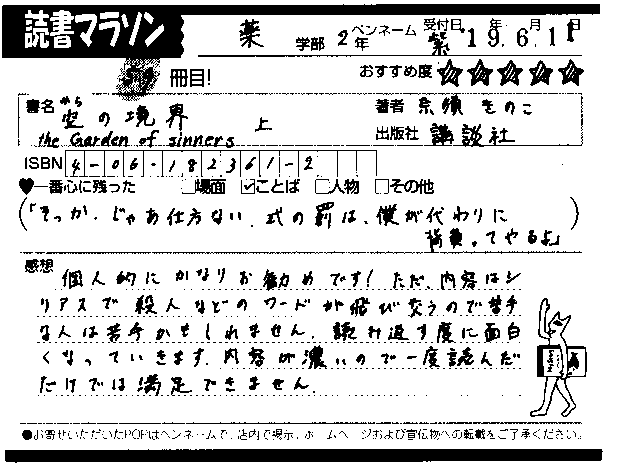 読書マラソン
薬 学部 2年 ペンネーム 紫 受付日 '19年 6月 11日
冊目! おすすめ度 ★★★★★
書名 空の境界 上 著者 奈須きのこ
から
the Garden of sinners 出版社 講談社
ISBN 4-06-182361-2
♥一番心に残った □場面 ☑ことば □人物 □その他
(「そっか、じゃあ仕方ない。式の罰は、僕が代わりに
背負ってやるよ」)
感想
個人的にかなりお勧めです!ただ、内容はシ
リアスで殺人などのワードが飛び交うので苦手
な人は苦手かもしれません。読み返す度に面白
くなっていきます。内容が濃いので一度読んだ
だけでは満足できません。
●お寄せいただいたPOPはペンネームで、店内で掲示、ホームページおよび宣伝物への転載をご了承ください。